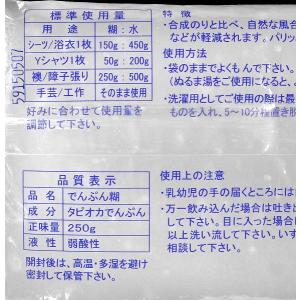 標準使用量
用途 糊:水
シーツ/浴衣1枚 150g:450g
Yシャツ1枚 50g:200g
襖/障子張り 250g:500g
手芸/工作 そのまま使用
好みに合わせて使用量を
調節して下さい。
59150507
品質表示
品名 でんぷん糊
成分 タピオカでんぷん
正味量 250g
液性 弱酸性
開封後は、高温・多湿を避け
密封して保管下さい。
特徴
・合成のりと比べ、自然な風合
などが軽減されます。パリッ
使用方法
・袋のままでよくもんで下さい。
(ぬるま湯をご使用になると、よ
・洗濯用としてご使用の際は最
ものを入れ、5~10分程置き脱
使用上の注意
・乳幼児の手の届くところには
・万一飲み込んだ場合は吐き出
して下さい。目に入った場合
以上洗い流して下さい。いず
相談して下さい。